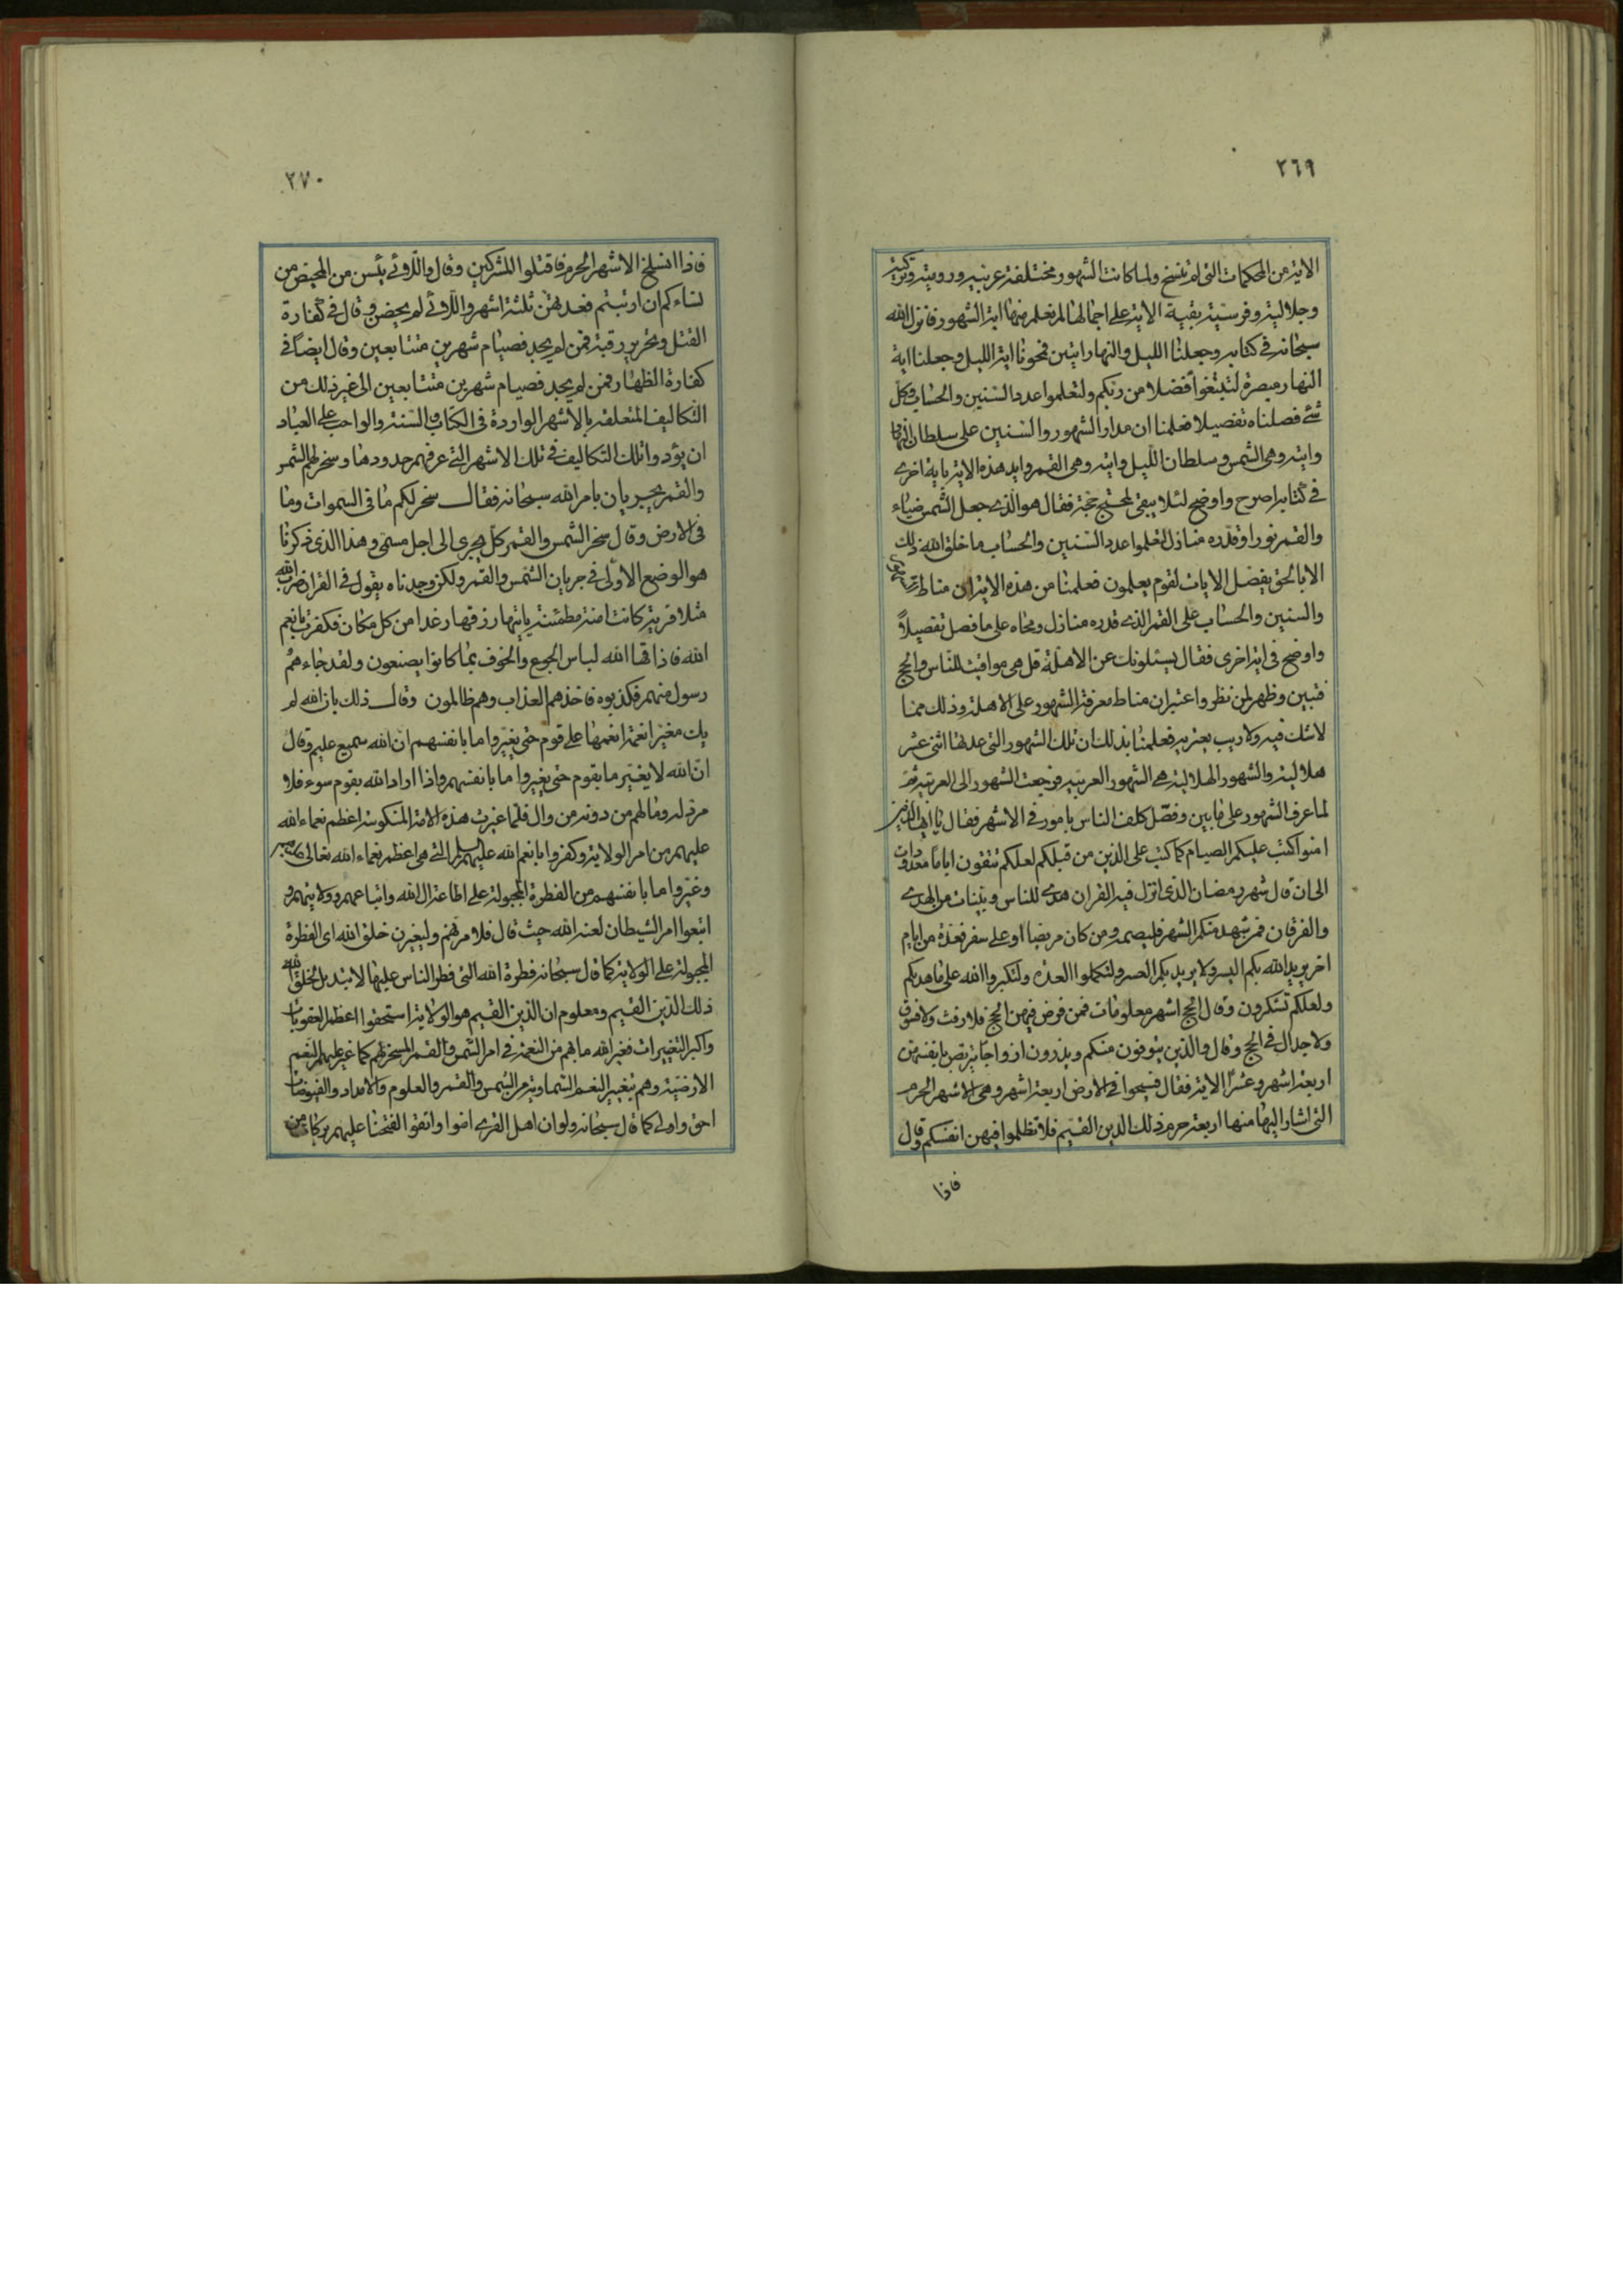 ٢٦٩
الاية من المحكمات التى لم تنسخ ولما كانت الشهور مختلفة عربية ورومية وتركية
وجلالية وفرسية بقية الاية على اجمالها لم نعلم منها اية الشهور فانزل الله
سبحانه فى كتابه وجعلنا الليل والنهار ايتين فمحونا اية الليل وجعلنا اية
النهار مبصرة لتبتغوا فضلا من ربكم ولتعلموا عدد السنين والحساب وكل
شئ فصلناه تفصيلا فعلمنا ان مدار الشهور والسنين على سلطان النهار
وايته وهى الشمس وسلطان الليل وايته وهى القمر وايد هذه الاية باية اخرى
فى كتابه اصرح واوضح لئلا يبقى لمحتج حجة فقال هو الذى جعل الشمس ضياء
والقمر نورا وقدره منازل لتعلموا عدد السنين والحساب ما خلق الله ذلك
الا بالحق يفصل الايات لقوم يعلمون فعلمنا من هذه الاية ان مناط
والسنين والحساب على القمر الذى قدره منازل ومحاه على ما فصل تفصيلاً
واوضح فى اية اخرى فقال يسئلونك عن الاهلة قل هى مواقيت للناس والحج
فتبين وظهر لمن نظر واعتبر ان مناط معرفة الشهور على الاهلة وذلك مما
لا شك فيه ولا ريب يعتريه فعلمنا بذلك ان تلك الشهور التى عدتها اثنى عشر
هلالية والشهور الهلالية هى الشهور العربية فرجعت الشهور الى العربية ثم
لما عرف الشهور على ما بين وفصّل كلف الناس بامور فى الاشهر فقال يا ايها الذين
امنوا كتب عليكم الصيام كما كتب على الذين من قبلكم لعلكم تتقون اياما معدودات
الى ان قال شهر رمضان الذى انزل فيه القران هدى للناس وبينات من الهدى
والفرقان فمن شهد منكم الشهر فليصمه ومن كان مريضا او على سفر فعدة من ايام
اخر يريد الله بكم اليسر ولا يريد بكم العسر ولتكملوا العدة ولتكبروا الله على ما هديكم
ولعلكم تشكرون وقال الحج اشهر معلومات فمن فرض فيهن الحج فلا رفث ولا فسوق
ولا جدال فى الحج وقال والذين يتوفون منكم ويذرون ازواجا يتربصن بانفسهن
اربعة اشهر وعشرًا الاية فقال فسيحوا فى الارض اربعة اشهر وهى الاشهر الحرم
التى اشار اليها منها اربعة حرم ذلك الدين القيم فلا تظلموا فيهن انفسكم وقال
فاذا
٢٧٠
فاذا انسلخ الاشهر الحرم فاقتلوا المشركين وقال واللاوئى يئسن من المحيض من
نساءكم ان ارتبتم فعدتهن ثلثة اشهر واللاوئى لم يحضن وقال فى كفارة
القتل وتحرير رقبة فمن لم يجد فصيام شهرين متتابعين وقال ايضاً فى
كفارة الظهار فمن لم يجد فصيام شهرين متتابعين الى غير ذلك من
التكاليف المتعلقة بالاشهر الواردة فى الكتاب والسنة والواجب على العباد
ان يؤدوا تلك التكاليف فى تلك الاشهر التى عرفهم حدودها وسخر لهم الشمس
والقمر يجريان بامر الله سبحانه فقال سخر لكم ما فى السموات وما
فى الارض وقال سخر الشمس والقمر كل يجرى الى اجل مسمى وهذا الذى ذكرنا
هو الوضع الاولى فى جريان الشمس والقمر ولكن وجدناه يقول فى القران ضرب الله
مثلا قرية كانت امنة مطمئنة ياتيها رزقها رغدا من كل مكان فكفرت بانعم
الله فاذاقها الله لباس الجوع والخوف بما كانوا يصنعون ولقد جاءهم
رسول منهم فكذبوه فاخذهم العذاب وهم ظالمون وقال ذلك بان الله لم
يك مغيرا نعمة انعمها على قوم حتى يغيروا ما بانفسهم ان الله سميع عليم وقال
انّ الله لا يغير ما بقوم حتى يغيروا ما بانفسهم واذا اراد الله بقوم سوء فلا
مرد له وما لهم من دونه من وال فلما غيرت هذه الامة المنكوسة اعظم نعماء الله
عليهم من امر الولاية وكفروا بانعم الله عليهم السلم التى هى اعظم نعماء الله تعالى
وغيروا ما بانفسهم من الفطرة المجبولة على اطاعة ال الله واتباعهم وولايتهم و
اتبعوا امر الشيطان لعنه الله حيث قال فلامرنهم وليغيرن خلق الله اى الفطرة
المجبولة على الولاية كما قال سبحانه فطرة الله التى فطر الناس عليها لا تبديل لخلق الله
ذلك الدين القيم ومعلوم ان الدين القيم هو الولاية استحقوا اعظم العقوبات
واكبر التغييرات فغير الله ما بهم من النعمة فى امر الشمس والقمر المسخر لهم كما غير عليهم النعم
الارضية وهم بتغيير النعم السماوية من الشمس والقمر والعلوم والامداد والفيوضات
احق واولى كما قال سبحانه ولو ان اهل القرى امنوا واتقوا لفتحنا عليهم بركات من